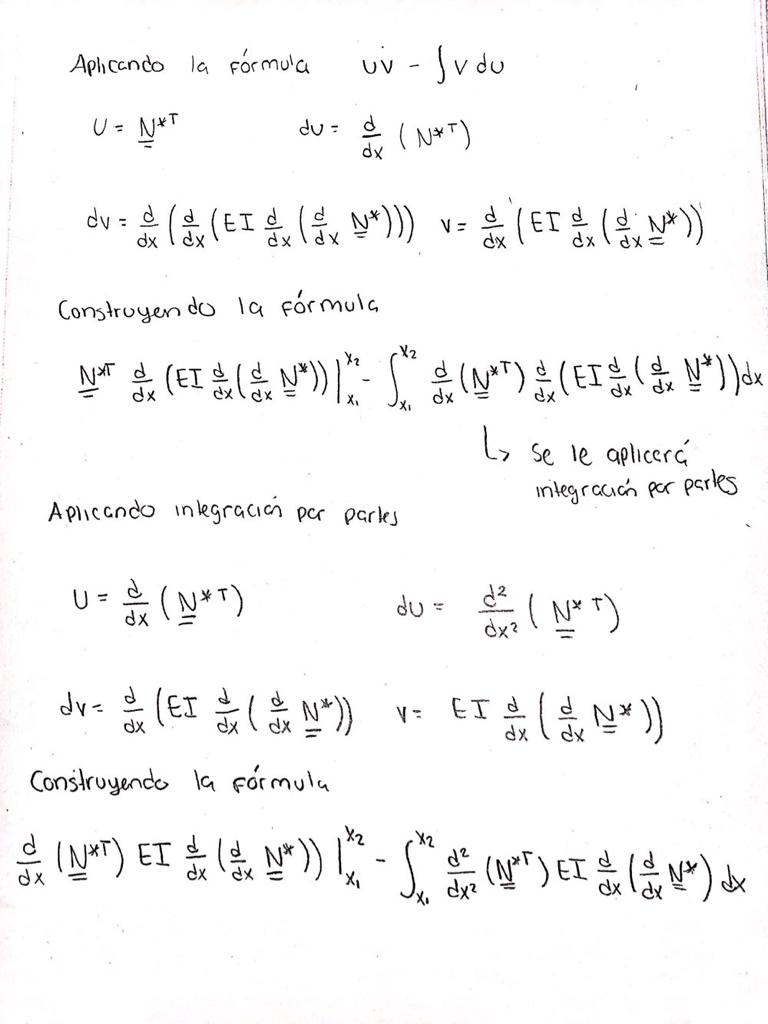 Aplicando la fórmula uv - ∫ v du
U = N*ᵀ du = d/dx (N*ᵀ)
dv = d/dx (d/dx (EI d/dx (d/dx N*))) v = d/dx (EI d/dx (d/dx N*))
Construyendo la fórmula
N*ᵀ d/dx (EI d/dx (d/dx N*)) |ₓ₁ˣ² - ∫ₓ₁ˣ² d/dx (N*ᵀ) d/dx (EI d/dx (d/dx N*)) dx
↳ Se le aplicerá
integración por partes
Aplicando integración por partes
U = d/dx (N*ᵀ) du = d²/dx² (N*ᵀ)
dv = d/dx (EI d/dx (d/dx N*)) v = EI d/dx (d/dx N*))
Construyendo la fórmula
d/dx (N*ᵀ) EI d/dx (d/dx N*)) |ₓ₁ˣ² - ∫ₓ₁ˣ² d²/dx² (N*ᵀ) EI d/dx (d/dx N*) dx